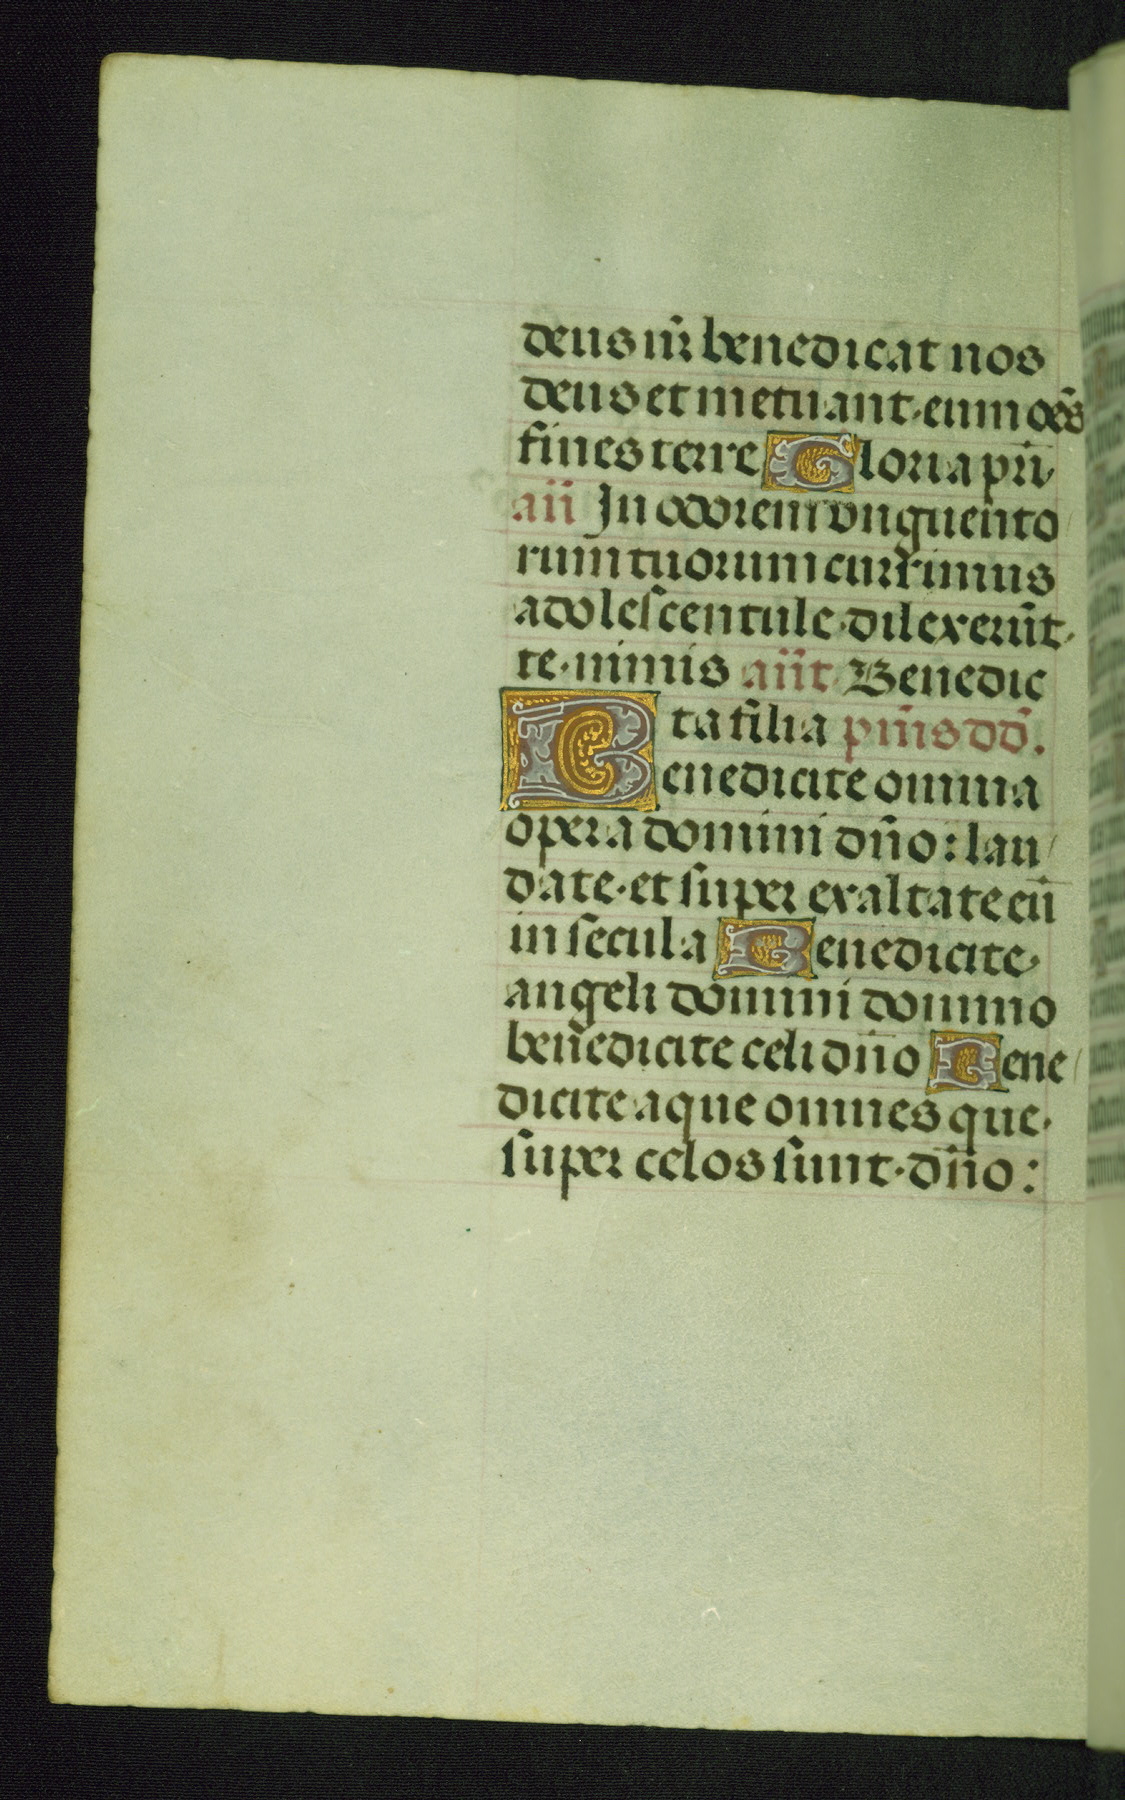 deus nr̄ benedicat nos
deus et metuant·eum oēs
fines terre Gloria pr̄i·
an̄ In odorem vnguento
rum tuorum currimus
adolescentule·dilexerūt·
te·nimis an̄t Benedic
ta filia pm̄s dd̄.
Benedicite omnia
opera domini dn̄o: lau
date·et super exaltate eū
in secula Benedicite·
angeli domini domino
benedicite celi dn̄o Bene
dicite aque omnes que·
super celos sunt·dn̄o: